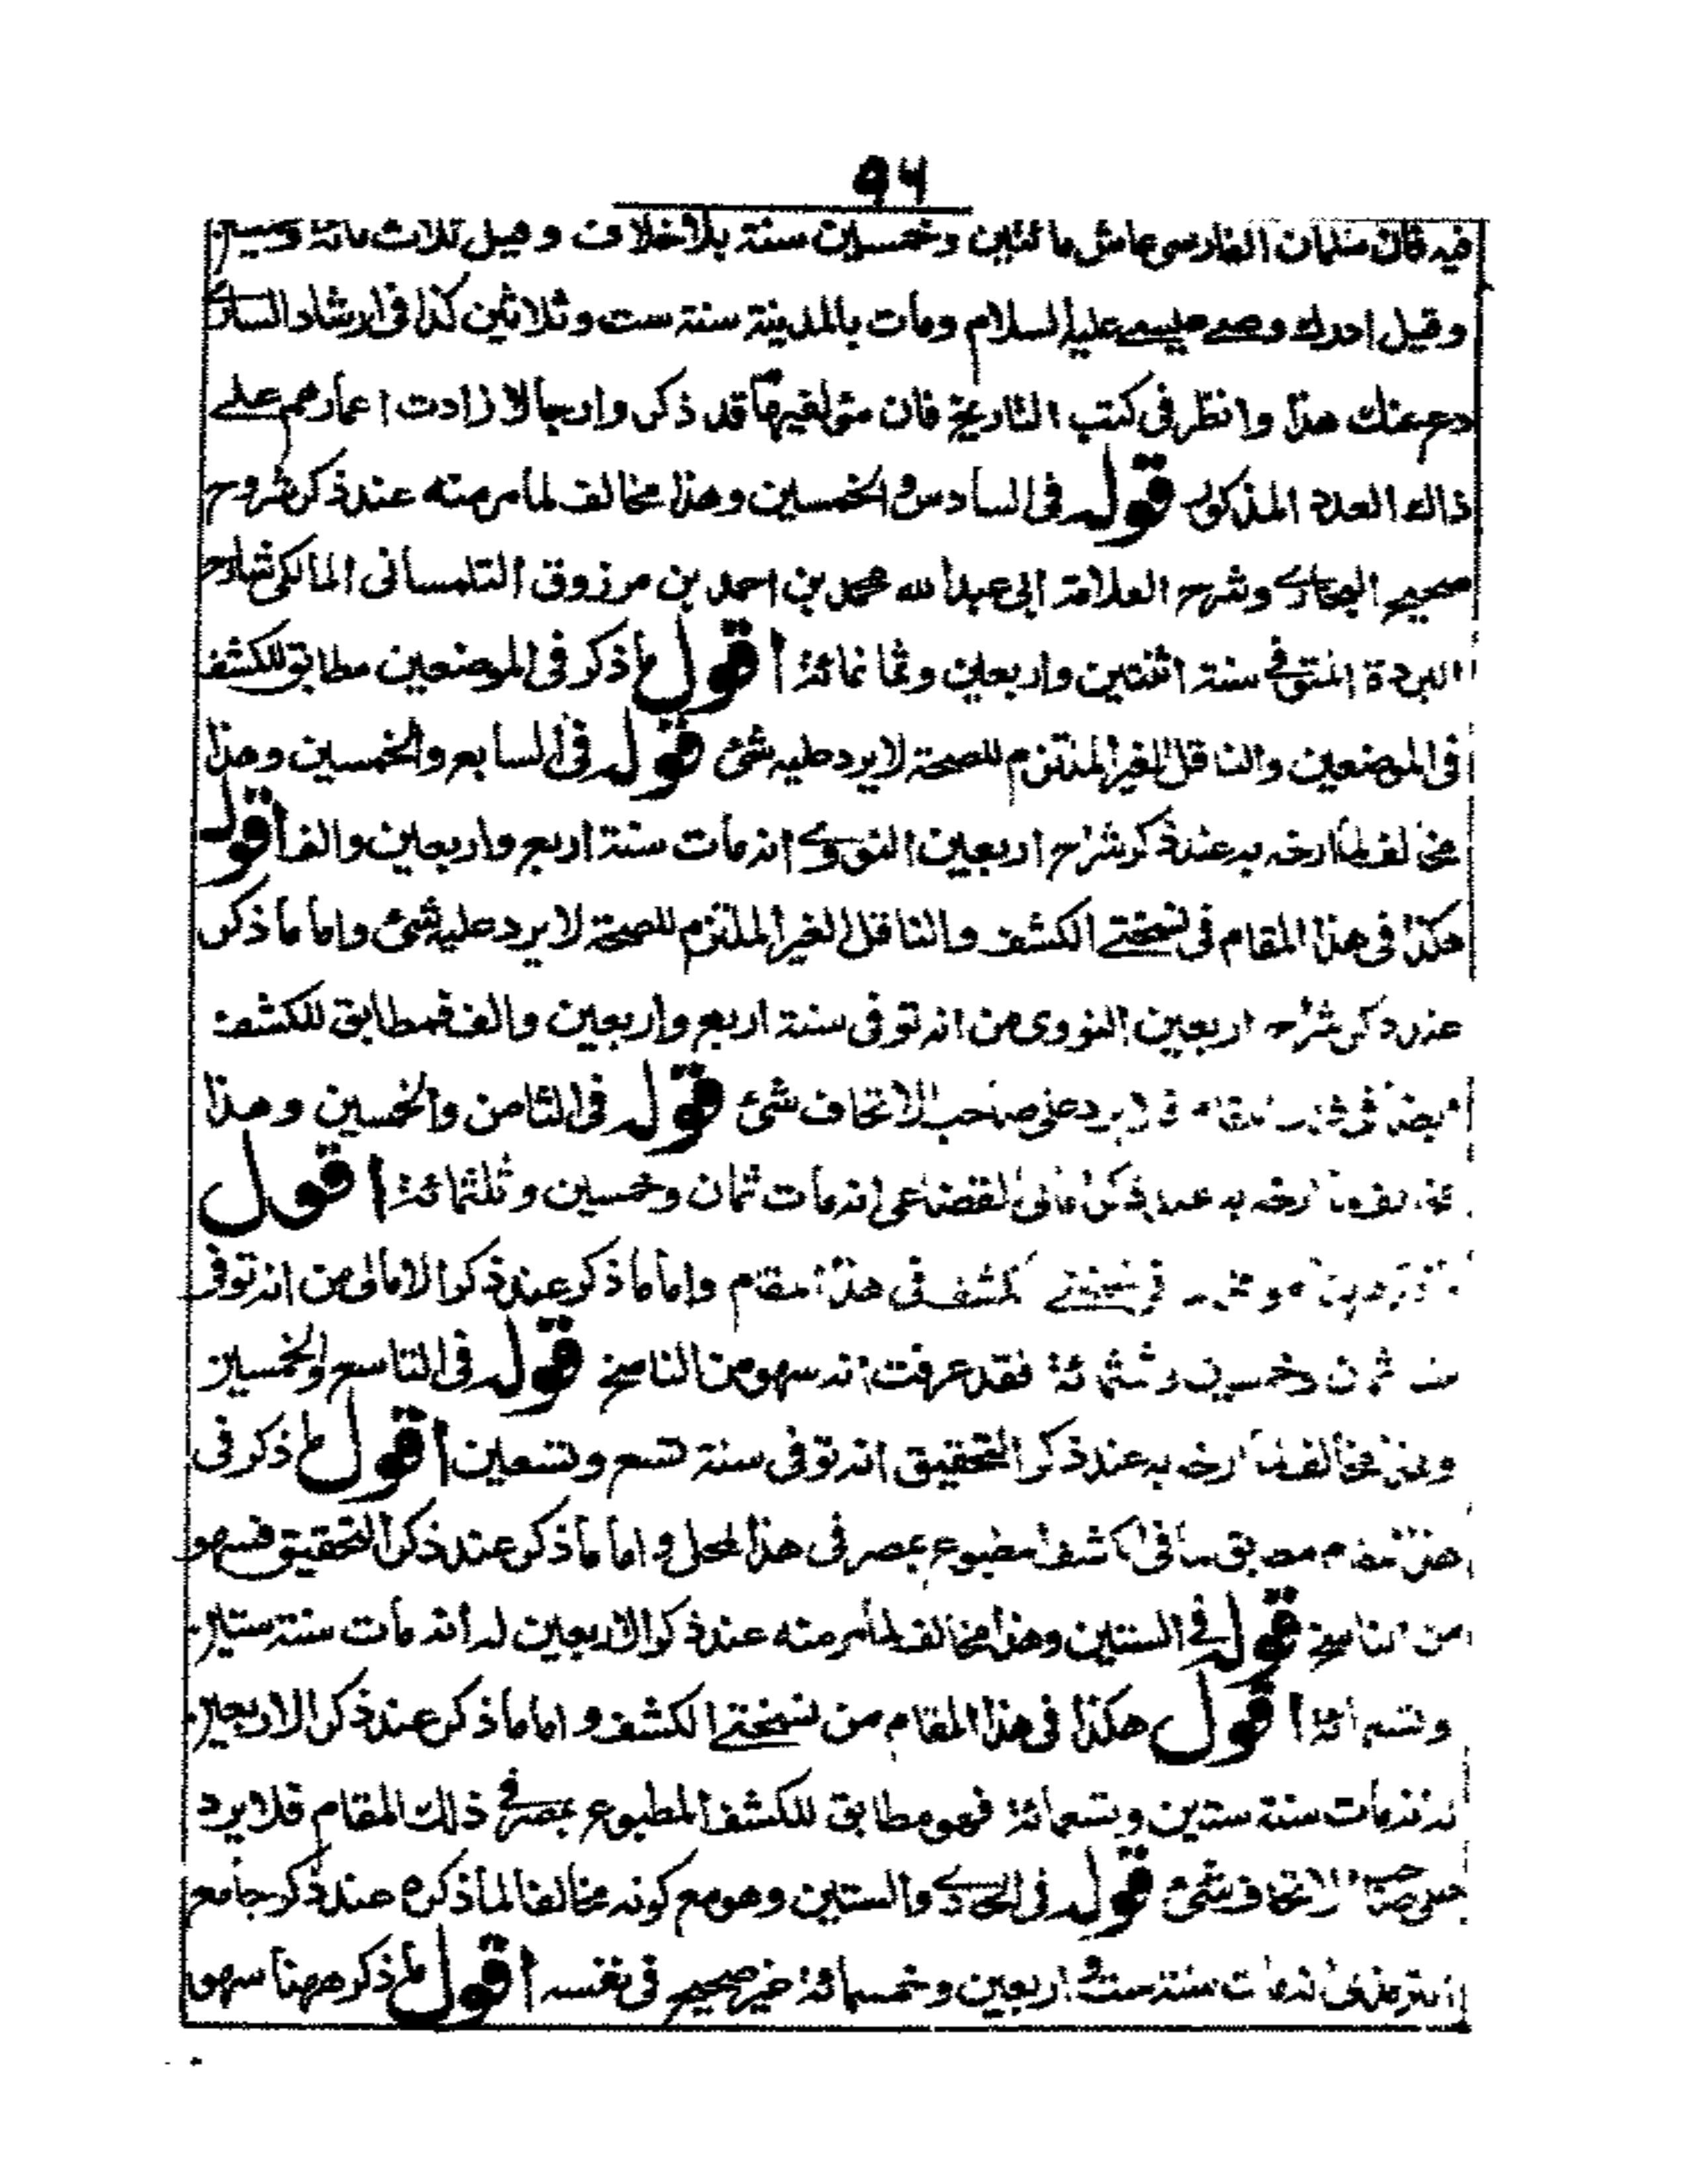 ٩٦
فيه فان سلمان الفارسى عاش مائتين وخمسين سنة بلا خلاف وقيل ثلاث مائة وخمسين
وقيل ادرك وصى عيسى عليه السلام ومات بالمدينة سنة ست وثلاثين كذا فى ارشاد السارى
دع عنك هذا وانظر فى كتب التاريخ فان مؤلفيها قد ذكروا رجالا زادت اعمارهم على
ذلك العدد المذكور قوله فى السادس والخمسين وهذا مخالف لما مر منه عند ذكر شروح
صحيح البخارى وشرح العلامة ابى عبد الله محمد بن احمد بن مرزوق التلمسانى المالكى شارح
البردة المتوفى سنة اثنتين واربعين وثمانمائة اقول ما ذكر فى الموضعين مطابق للكشف
فى الموضعين والناقل الغير الملتزم للصحة لا يرد عليه شئ قوله فى السابع والخمسين وهذا
مخالف لما ارخه به عند ذكر شراح اربعين النووى انه مات سنة اربع واربعين والف اقول
هكذا فى هذا المقام فى نسختى الكشف والناقل الغير الملتزم للصحة لا يرد عليه شئ واما ما ذكر
عند ذكر شراح اربعين النووى من انه توفى سنة اربع واربعين والف فمطابق للكشف
ايضا فى ذلك المقام فلا يرد على صاحب الاتحاف شئ قوله فى الثامن والخمسين وهذا
مخالف لما ارخه به عند ذكر امالى القضاعى انه مات ثمان وخمسين وثلثمائة اقول
فى نسختى الكشف فى هذا المقام واما ما ذكر عند ذكر الامالى من انه توفى
سنة ثمان وخمسين وثلثمائة فقد عرفت انه سهو من الناسخ قوله فى التاسع والخمسين
وهذا مخالف لما ارخه به عند ذكر التحقيق انه توفى سنة تسع وتسعين اقول ما ذكر فى
هذا المقام مطابق لما فى الكشف المطبوع بمصر فى هذا المحل واما ما ذكر عند ذكر التحقيق فسهو
من الناسخ قوله فى الستين وهذا مخالف لما مر منه عند ذكر الاربعين له انه مات سنة ستين
وتسعمائة اقول هكذا فى هذا المقام من نسختى الكشف واما ما ذكر عند ذكر الاربعين
له انه مات سنة ستين وتسعمائة فهو مطابق للكشف المطبوع بمصر فى ذلك المقام فلا يرد
على صاحب الاتحاف شئ قوله فى الحادى والستين وهو مع كونه مخالفا لما ذكره عند ذكر جامع
الترمذى انه مات سنة ست واربعين وخمسمائة غير صحيح فى نفسه اقول ما ذكر ههنا سهو